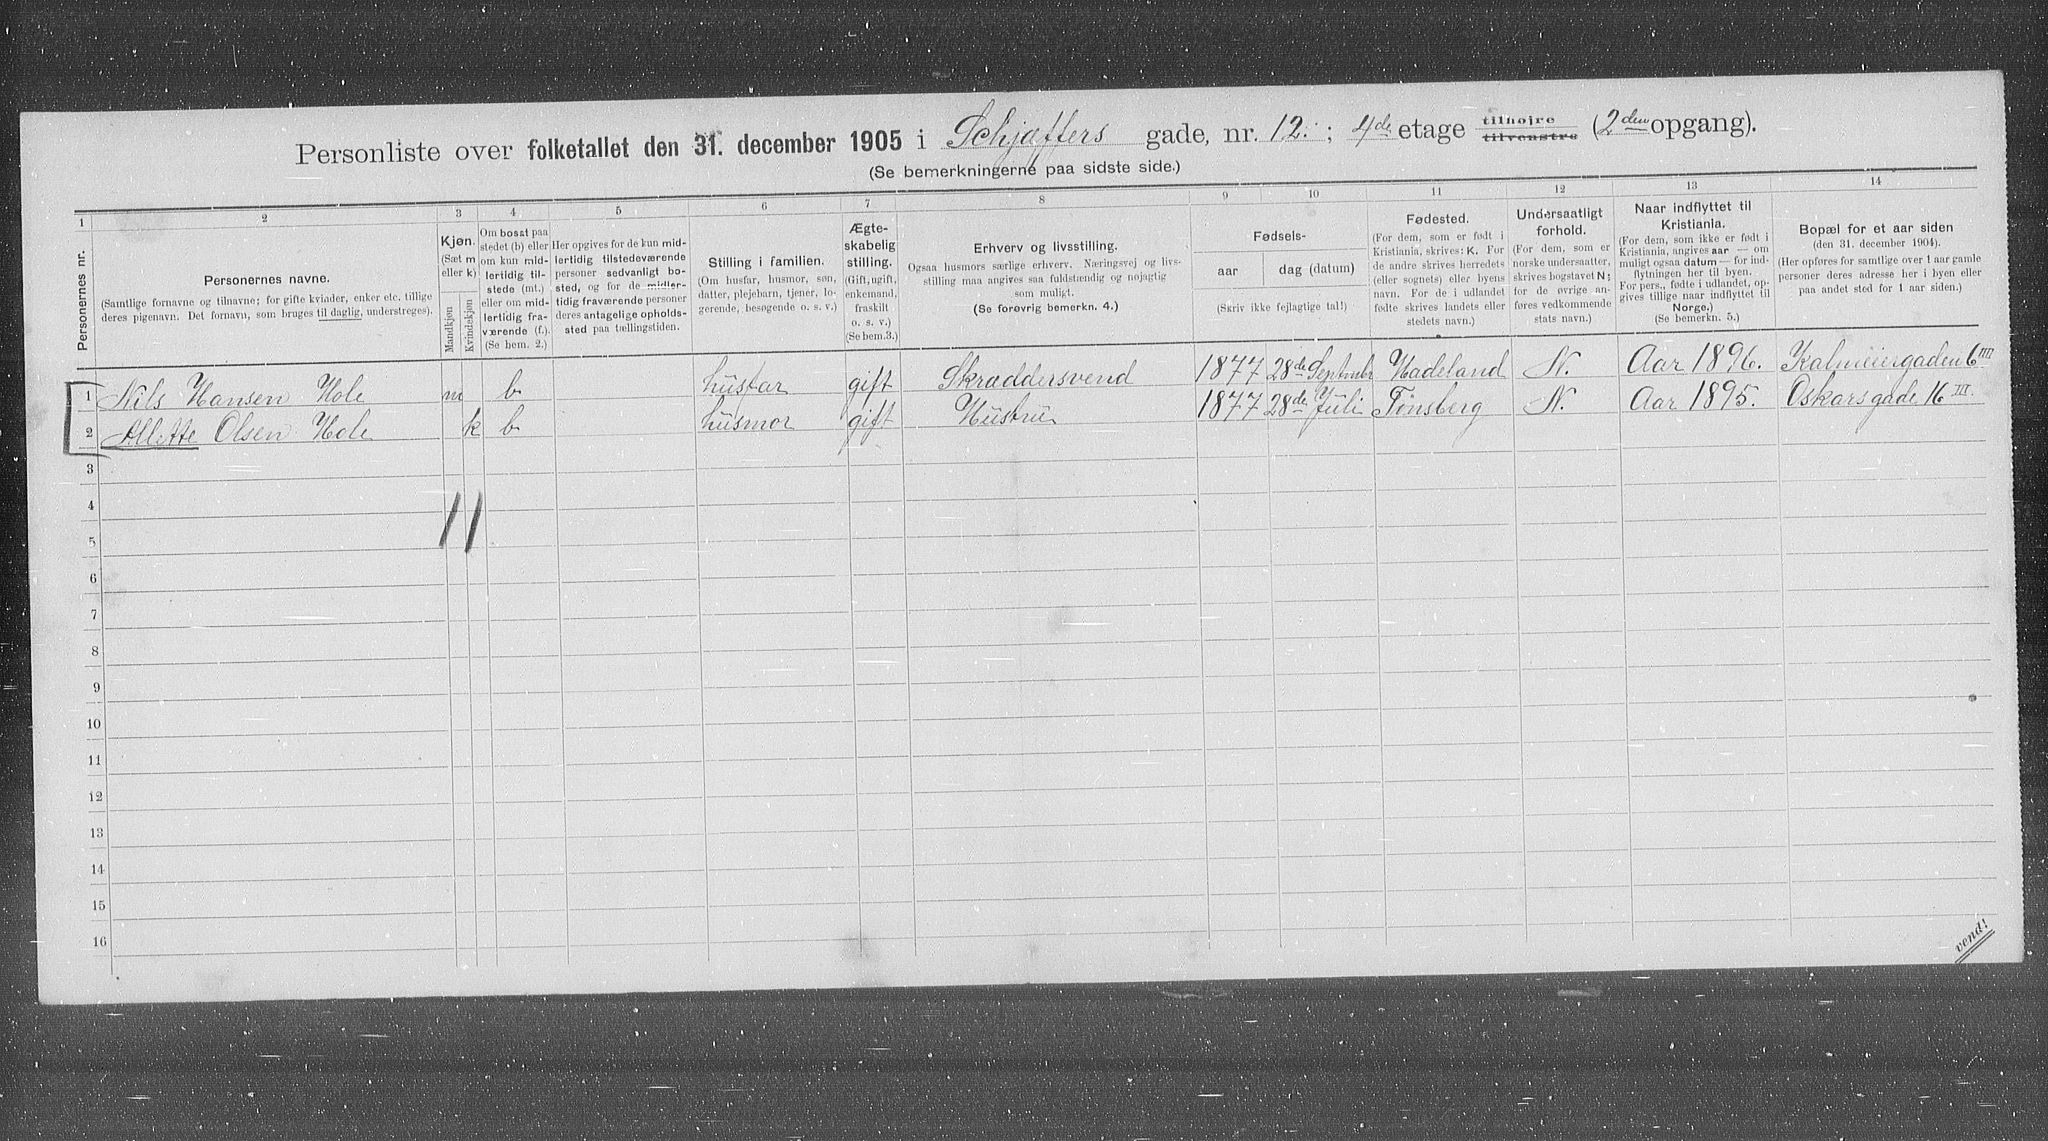 Personliste over folketallet den 31. december 1905 i Schjøffers gade, nr. 12. ; 4de etage tilhøjre tilvenstre (2den opgang).
(Se bemerkningerne paa sidste side.)
1 2 3 4 5 6 7 8 9 10 11 12 13 14
Personernes nr.
Personernes navne.
(Samtlige fornavne og tilnavne; for gifte kvinder, enker etc. tillige
deres pigenavn. Det fornavn, som bruges til daglig, understreges).
Kjøn.
(Sæt m
eller k)
Mandkjøn
Kvindekjøn
Om bosat paa
stedet (b) eller
om kun mid-
lertidig til-
stede (mt.)
eller om mid-
lertidig fra-
værende (f.).
(Se bem. 2.)
Her opgives for de kun mid-
lertidig tilstedeværende
personer sedvanligt bo-
sted, og for de midler-
tidig fraværende personer
deres antagelige opholds-
sted paa tællingstiden.
Stilling i familien.
(Om husfar, husmor, søn,
datter, plejebarn, tjener, lo-
gerende, besøgende o. s. v.)
Ægte-
skabelig
stilling.
(Gift, ugift,
enkemand,
fraskilt
o. s. v.)
(Se bem.3.)
Erhverv og livsstilling.
Ogsaa husmors særlige erhverv. Næringsvej og livs-
stilling maa angives saa fuldstændig og nøjagtig
som muligt.
(Se forøvrig bemerkn. 4.)
Fødsels-
aar dag (datum)
(Skriv ikke fejlagtige tal!)
Fødested.
(For dem, som er født i
Kristiania, skrives: K. For
de andre skrives herredets
(eller sognets) eller byens
navn. For de i udlandet
fødte skrives landets eller
stedets navn.)
Undersaatligt
forhold.
(For dem, som er
norske undersaatter,
skrives bogstavet N;
for de øvrige an-
føres vedkommende
stats navn.)
Naar indflyttet til
Kristiania.
(For dem, som ikke er født i
Kristiania, angives aar — om
muligt ogsaa datum — for ind-
flytningen her til byen.
For pers., fødte i udlandet, op-
gives tillige naar indflyttet til
Norge.)
(Se bemerkn. 5.)
Bopæl for et aar siden
(den 31. december 1904).
(Her opføres for samtlige over 1 aar gamle
personer deres adresse her i byen eller
paa andet sted for 1 aar siden.)
1 Nils Hansen Hole m b husfar gift Skræddersvend 1877 28de September Hadeland N. Aar 1896. Kalmeiergaden 6 IIII
2 Allette Olsen Hole k b husmor gift Hustru 1877 28de Juli Tønsberg N. Aar 1895. Oskarsgade 16 III.
3
4
1 1
5
6
7
8
9
10
11
12
13
14
15
16
vend!